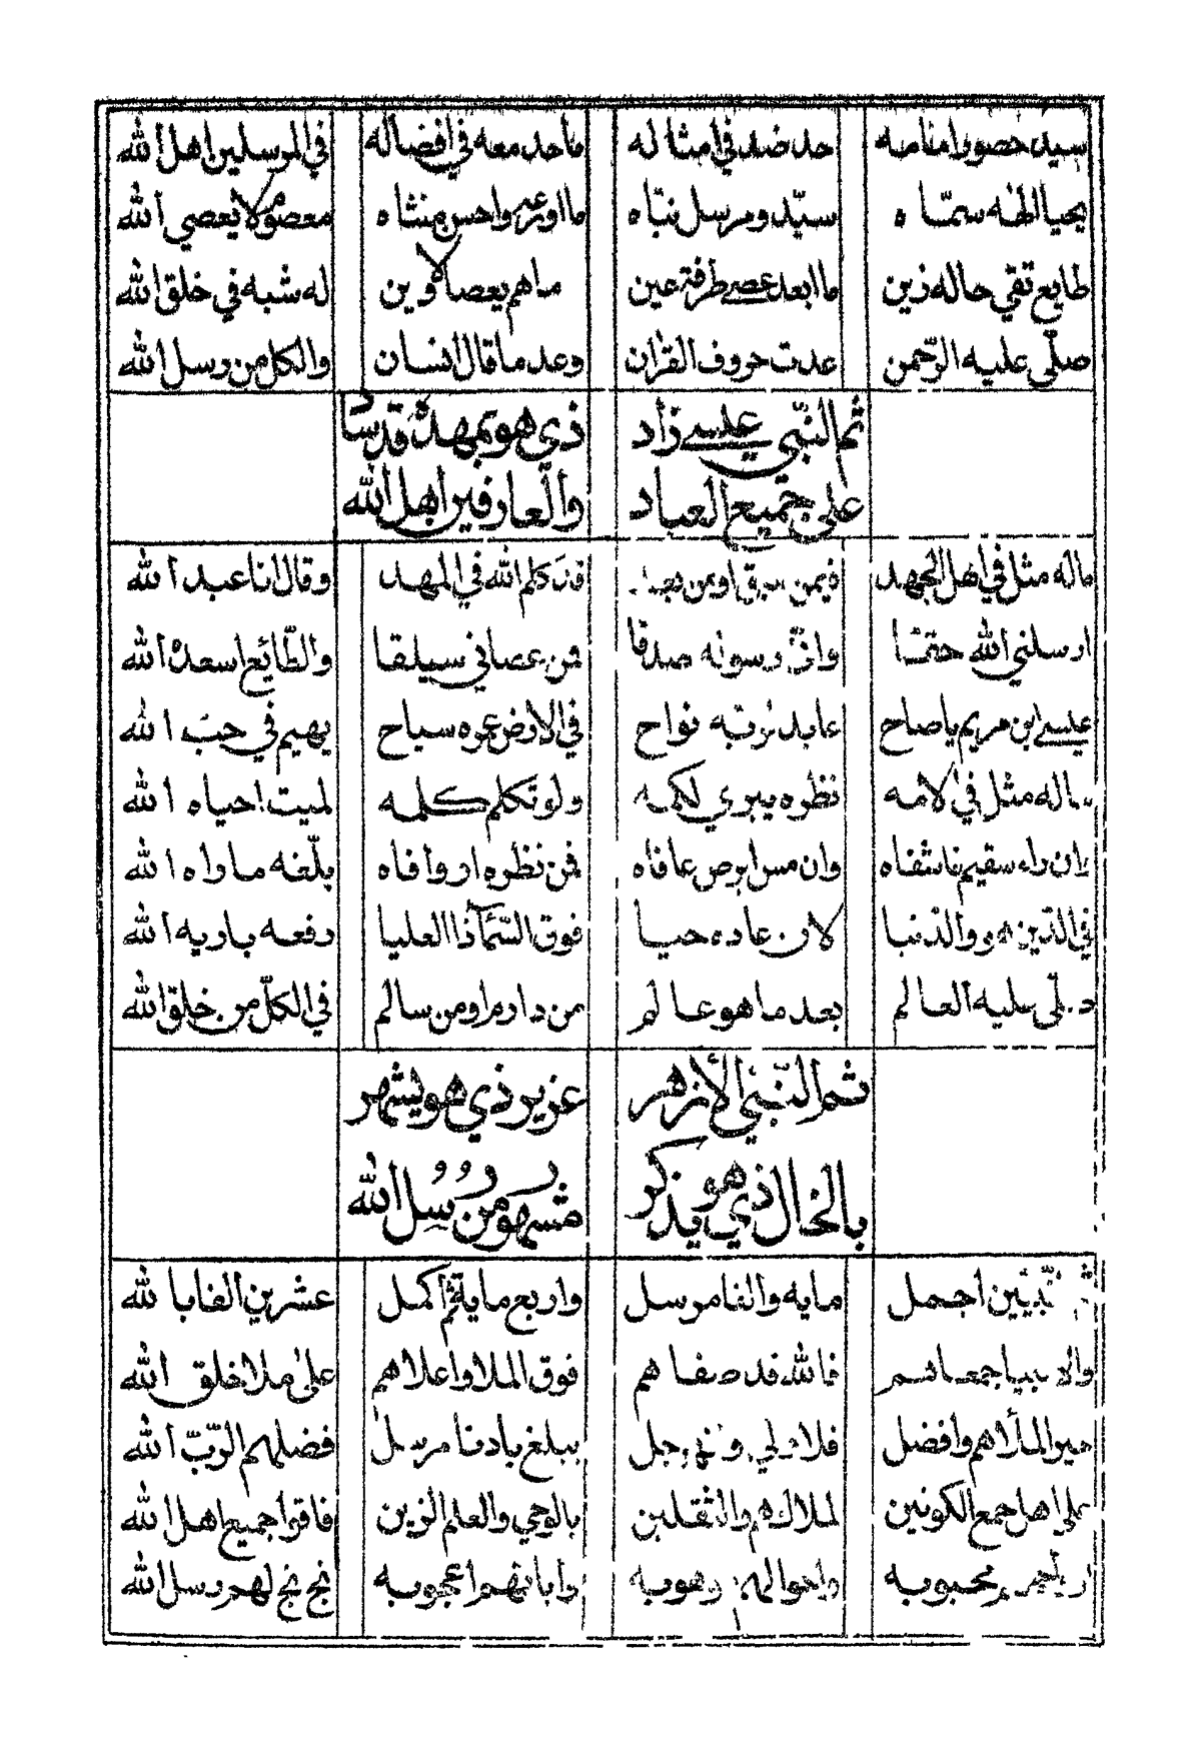 سيد حصورا منامه حد ضد في امثا له ماحد معه في افضاله في المرسلين اهل الله
يحيا الهه سمّا ه سيّد ومرسل نباه ما اورعه واحسن منشاه معصوم لا يعصي الله
طايع تقي حاله زين ما ابعد عصى طرفة عين ماهم يعصا لاوين له شبه في خلق الله
صلّى عليه الرّحمن عدت حروف القران وعد ما قال انسان والكل من رسل الله
ثم النبّي عيسى زاد ذي هو بمهده قد ساد
على جميع العباد والعارفين اهل الله
ماله مثل في اهل الجهد فيمن سبق اومن بعد قد كلم الله في المهد وقال انا عبد الله
ارسلني الله حقّا وانّ رسوله صدقا فمن عصاني سيلقا والطّائع اسعده الله
عيسى ابن مريم ياصاح عابد لربّه نواح في الارض عمره سياح يهيم في حبّ الله
ماله مثل في الامه نظره يبري لكمه ولو تكلم كلمه لميت احياه الله
ان راه سقيم ناشفاه وان مس ابرص عافاه فمن نظره اروافاه بلّغه ما راه الله
في الدّين هو والدّنيا لان عاده حيا فوق السّمآ ذا العليا رفعه باريه الله
صلّى عليه العالم بعد ما هو عالم من دارم اومن سالم في الكلّ من خلق الله
ثم النّبي الأزهر عزير ذي هو يشهر
بالخال ذي هو يذكر مشهور من رسل الله
نبيّين اجمل مايه والفا مرسل واربع مايه ثم اكمل عشرين الفا با لله
والانبيا جمعاهم فالله قد صفاهم فوق الملا واعلاهم على ملا خلق الله
خير الملأ هم وافضل فلا ولي رجل يبلغ بادنا مرسل فضلهم الرّبّ الله
على اهل جمع الكونين لملاك هم والثقلين بالوحي والعلم الزين فاقوا جميع اهل الله
محبوبه واحوالهم وهوبه واياتهم اعجوبه بخ بخ لهم رسل الله